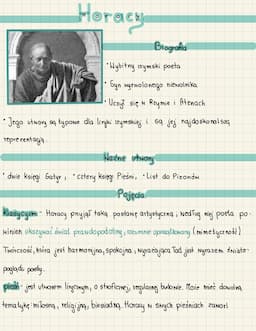 Horacy
Biografia
• Wybitny rzymski poeta
• Syn wyzwolonego niewolnika
• Uczył się w Rzymie i Atenach
• Jego utwory są typowe dla liryki rzymskiej i są jej najdoskonalszą
reprezentacją.
Ważne utwory
• dwie księgi Satyr; • cztery księgi Pieśni; • List do Pizonów
Pojęcia
Klasycyzm - Horacy przyjął taką postawę artystyczną, według niej poeta po-
winien ukazywać świat prawdopodobny, rozumnie uporządkowany (mimetyczność)
Twórczość, która jest harmonijna, spokojna, wyrażająca ład jest wyrazem świato-
poglądu poety.
pieśń - jest utworem lirycznym, o stroficznej, regularnej budowie. Może mieć dowolną
tematykę: miłosną, religijną, biesiadną. Horacy w swych pieśniach zawarł